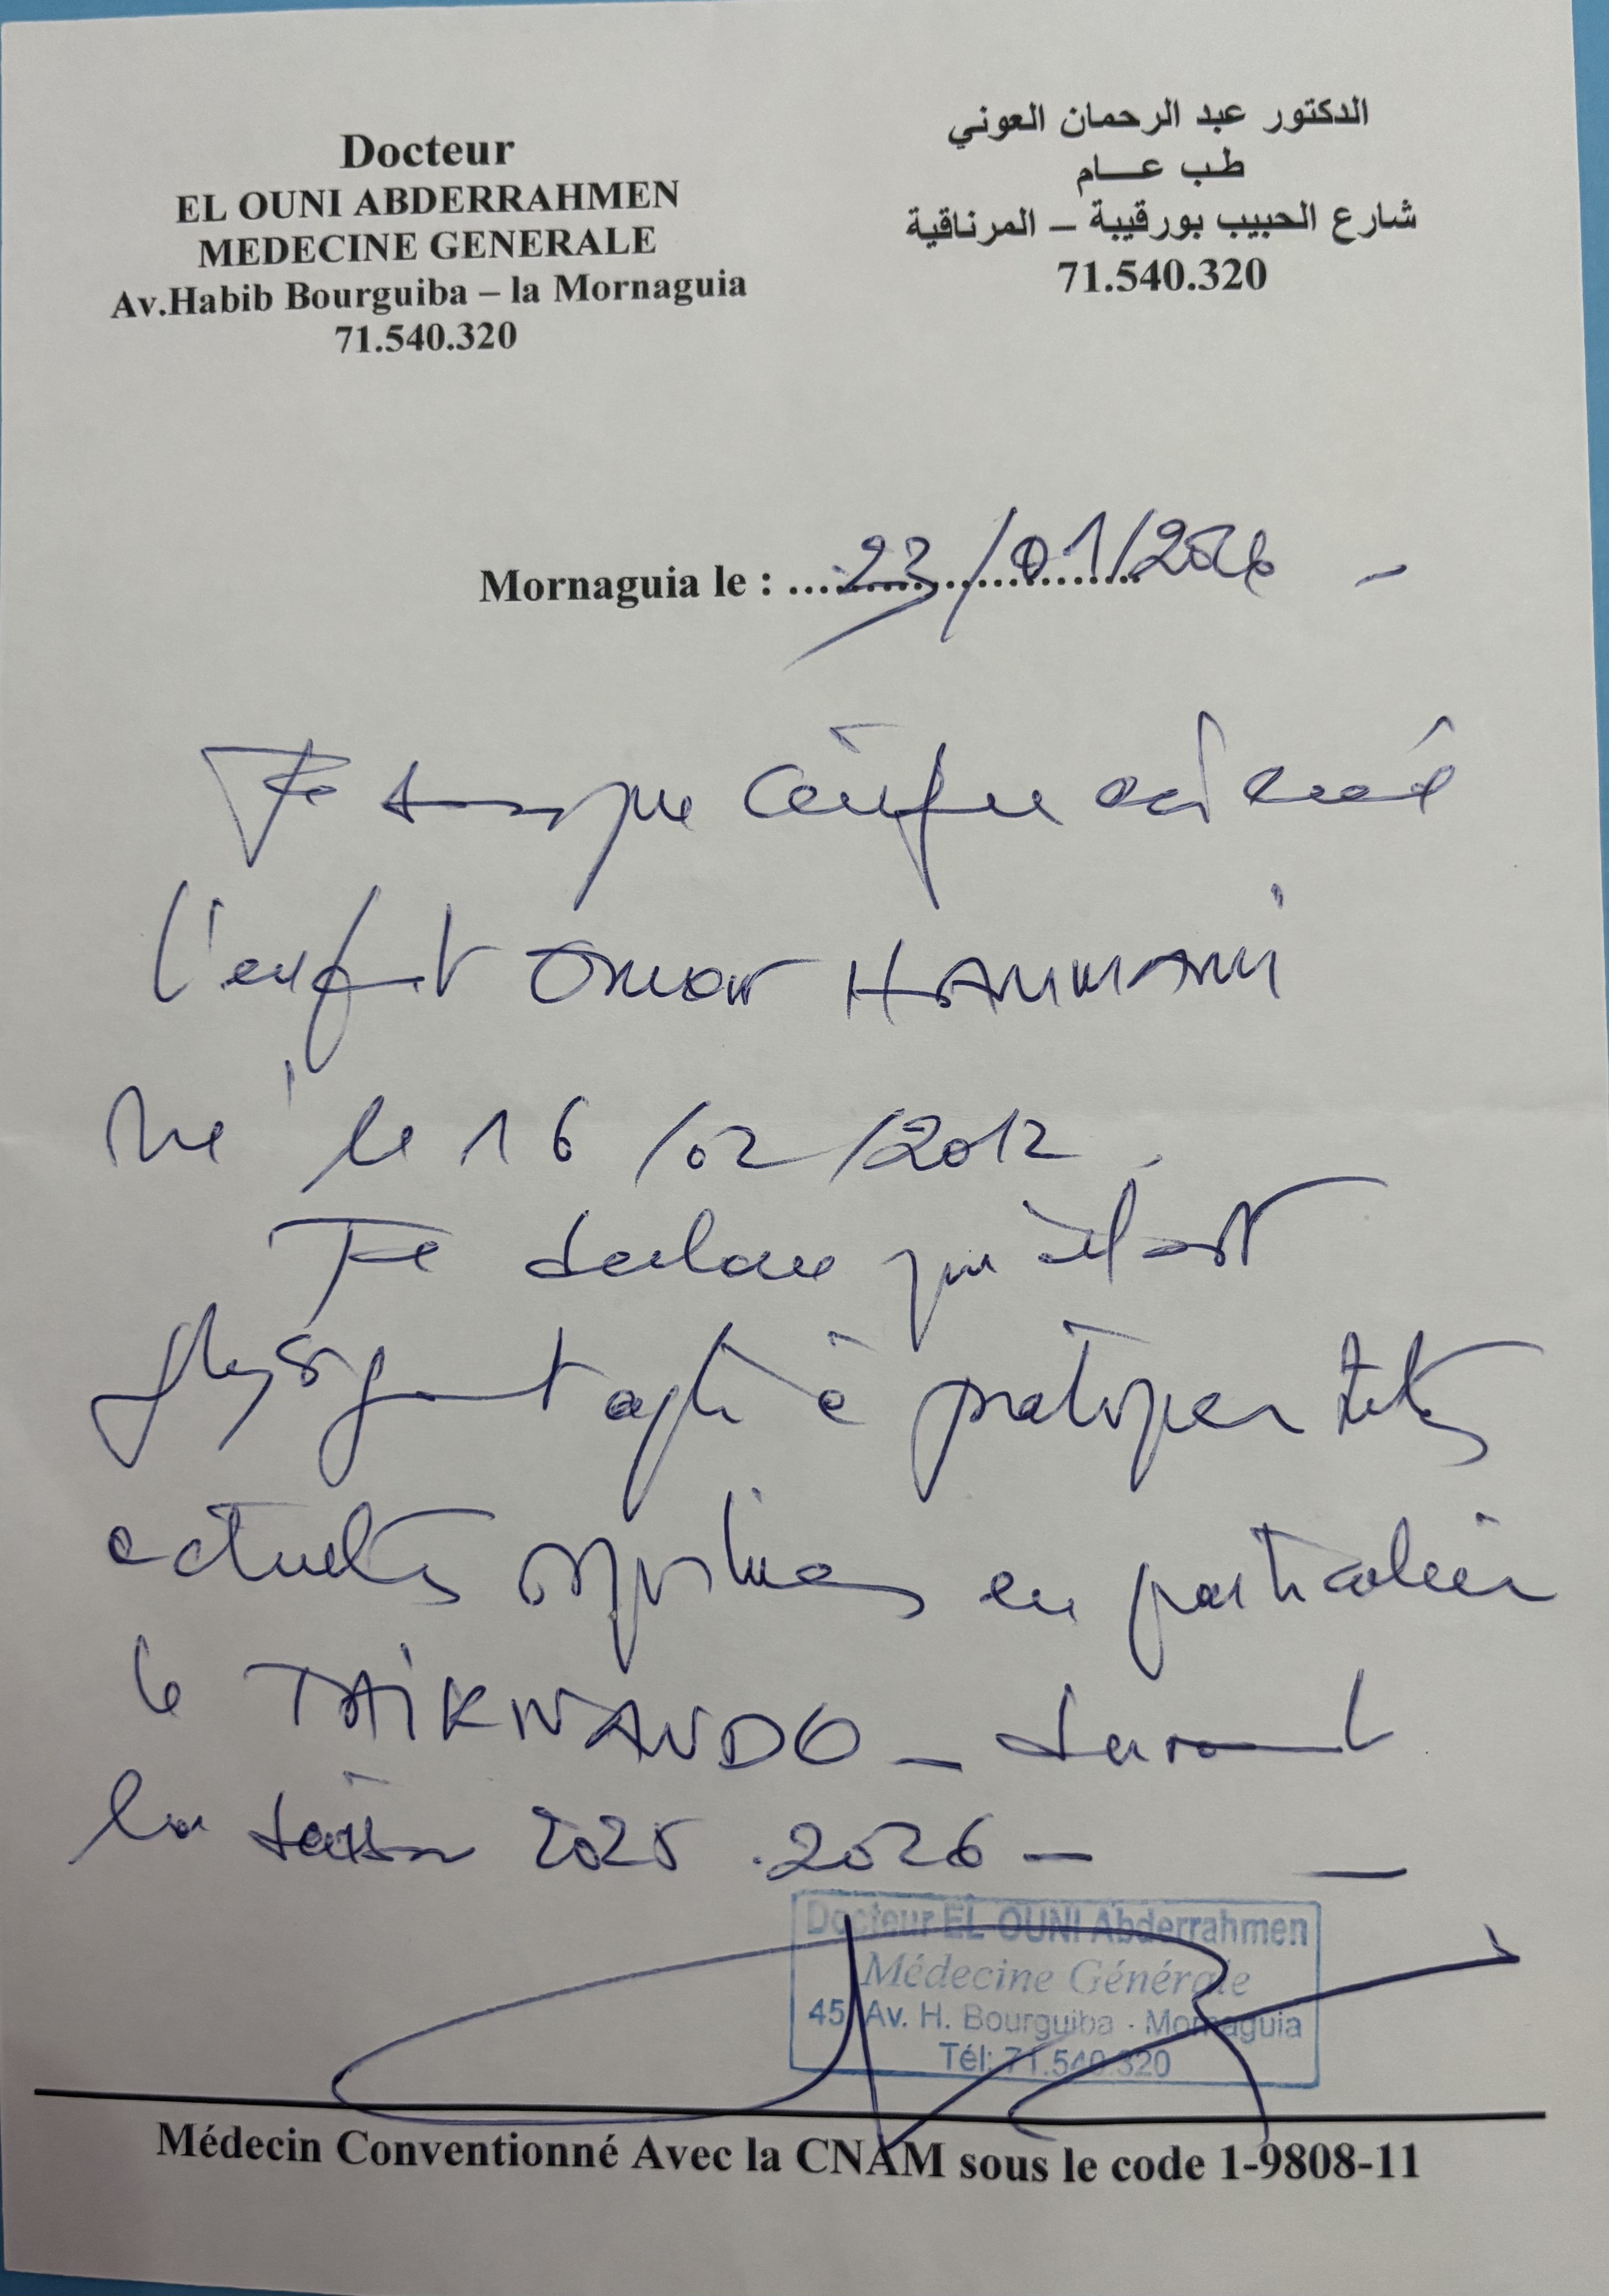 Docteur
EL OUNI ABDERRAHMEN
MEDECINE GENERALE
Av.Habib Bourguiba – la Mornaguia
71.540.320
الدكتور عبد الرحمان العوني
طب عـــام
شارع الحبيب بورقيبة – المرناقية
71.540.320
Mornaguia le : 23/01/2026 -
Je certifie
l'enfant Omar HAMMAMI
né le 16/02/2012.
Je declare qu'il est
apte à pratiquer
sportives en particulier
le TAIKWANDO - durant
la saison 2025.2026 -
Docteur EL OUNI Abderrahmen
Médecine Générale
45, Av. H. Bourguiba - Mornaguia
Tél: 71.540.320
Médecin Conventionné Avec la CNAM sous le code 1-9808-11